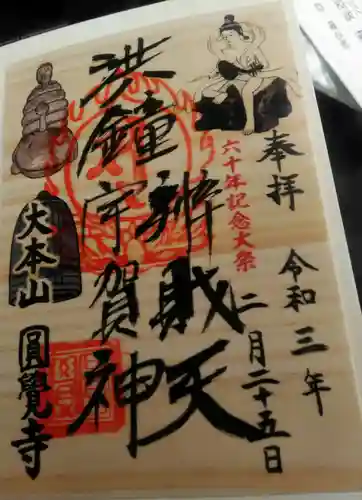 奉拝
令和三年
二月二十五日
六十年記念大祭
辨財天
洪鐘宇賀神
大本山
圓覺寺